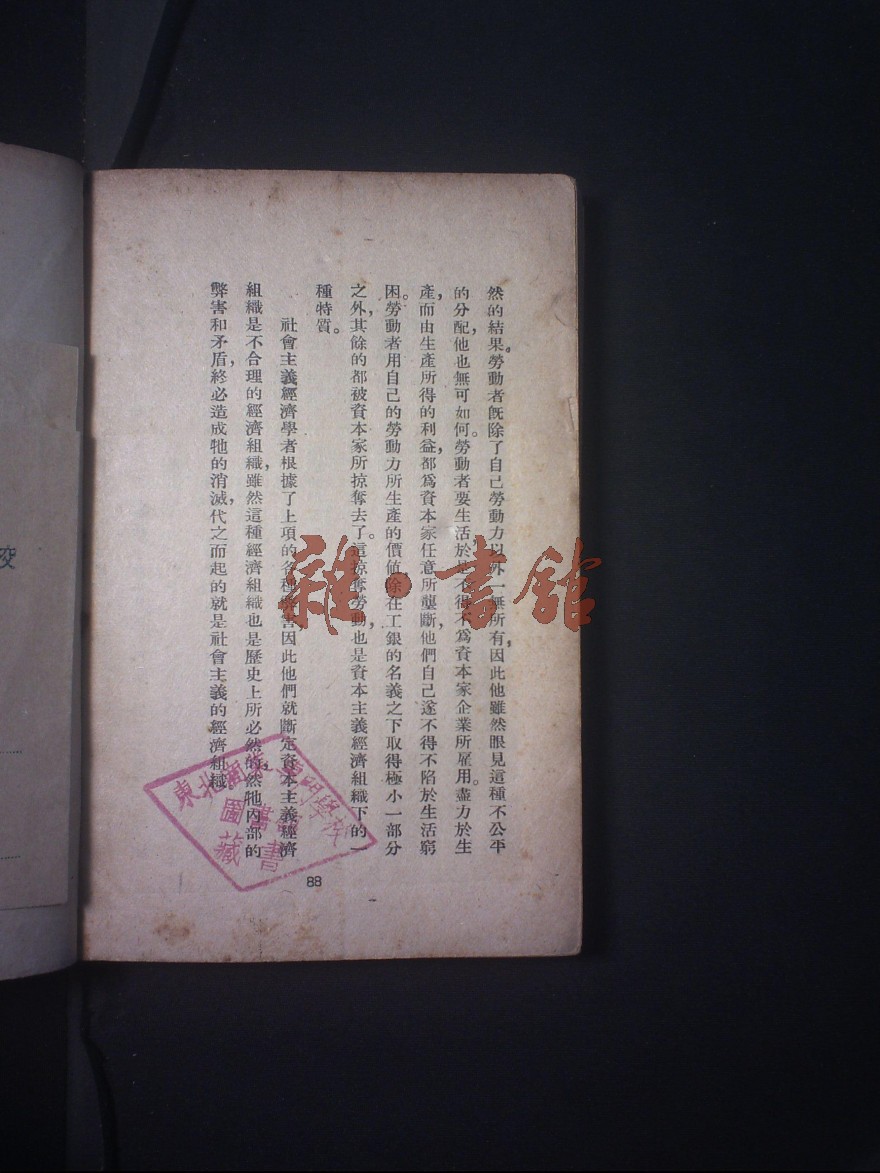 然的結果。勞動者旣除了自己勞動力以外一無所有，因此他雖然眼見這種不公平
的分配，他也無可如何。勞動者要生活，於是不得不爲資本家企業所雇用。盡力於生
產，而由生產所得的利益，都爲資本家任意所壟斷，他們自己遂不得不陷於生活窮
困。勞動者用自己的勞動力所生產的價値，除在工銀的名義之下取得極小一部分
之外，其餘的都被資本家所掠奪去了。這掠奪勞動，也是資本主義經濟組織下的一
種特質。
社會主義經濟學者根據了上項的各種弊害，因此他們就斷定資本主義經濟
組織是不合理的經濟組織，雖然這種經濟組織也是歷史上所必然的，然牠內部的
弊害和矛盾，終必造成牠的消滅，代之而起的就是社會主義的經濟組織
88
雜·書館
東北 專門學校
圖書
藏書